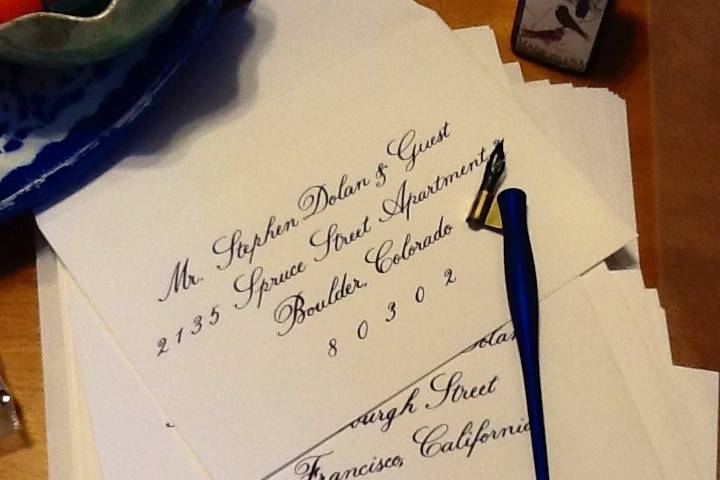 Mr. Stephen Dolan & Guest
2135 Spruce Street Apartment
Boulder, Colorado
80302
Street
Francisco, California